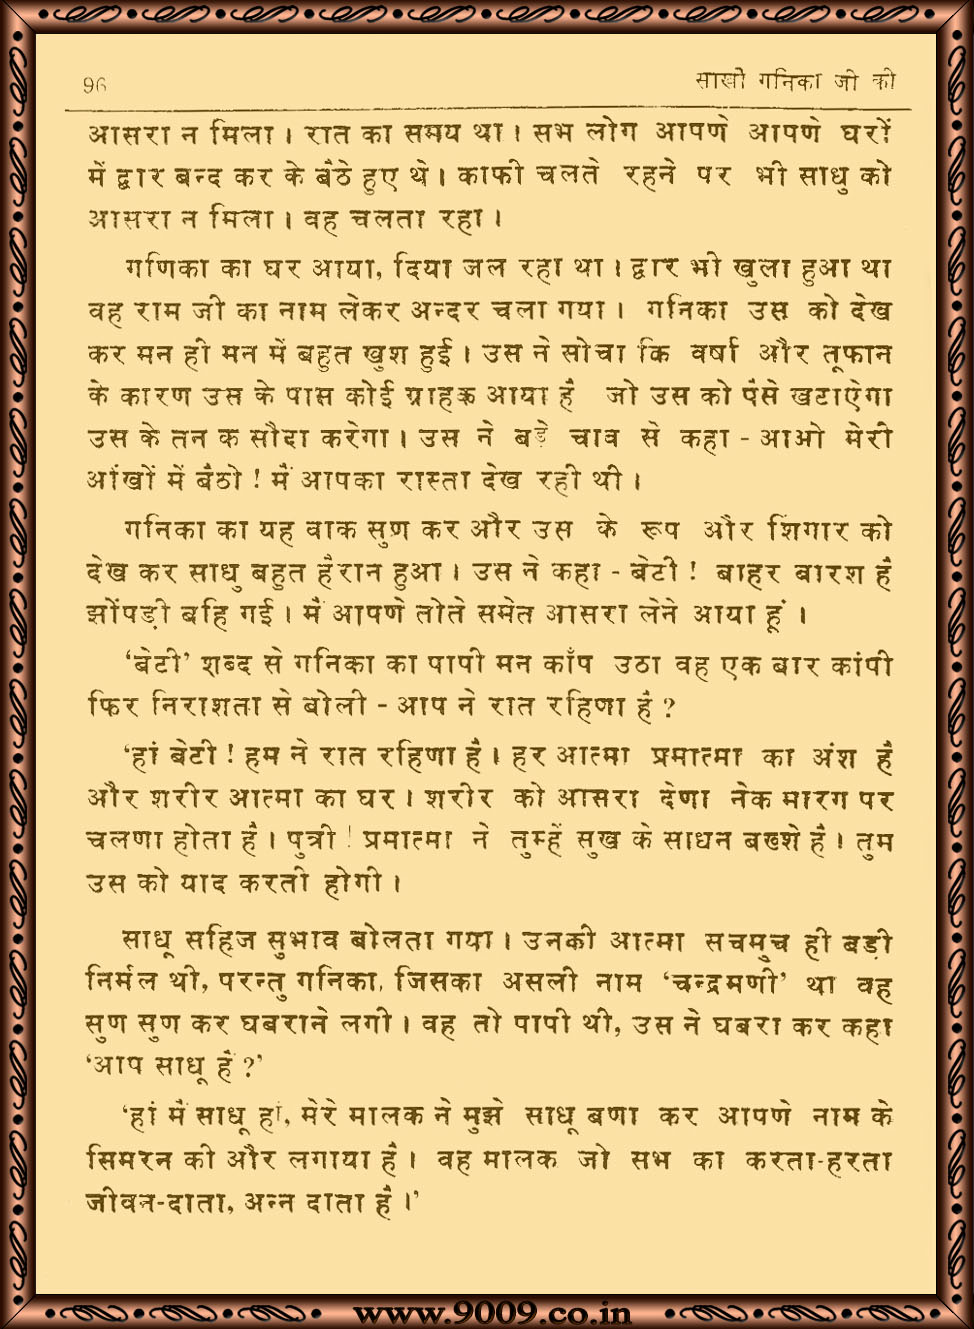 96 साखी गनिका जी की
आसरा न मिला । रात का समय था । सभ लोग आपणे आपणे घरों
में द्वार बन्द कर के बैठे हुए थे । काफी चलते रहने पर भी साधु को
आसरा न मिला । वह चलता रहा ।
गणिका का घर आया, दिया जल रहा था । द्वार भी खुला हुआ था
वह राम जी का नाम लेकर अन्दर चला गया । गनिका उस को देख
कर मन ही मन में बहुत खुश हुई । उस ने सोचा कि वर्षा और तूफान
के कारण उस के पास कोई ग्राहक आया है जो उस को पैसे खटाऐगा
उस के तन क सौदा करेगा । उस ने बड़े चाव से कहा - आओ मेरी
आंखों में बैठो ! मैं आपका रास्ता देख रही थी ।
गनिका का यह वाक सुण कर और उस के रूप और शिंगार को
देख कर साधु बहुत हैरान हुआ । उस ने कहा - बेटी ! बाहर बारश है
झोंपड़ी बहि गई । मैं आपणे तोते समेत आसरा लेने आया हूं ।
‘बेटी’ शब्द से गनिका का पापी मन काँप उठा वह एक बार कांपी
फिर निराशता से बोली - आप ने रात रहिणा है ?
‘हां बेटी ! हम ने रात रहिणा है । हर आत्मा प्रमात्मा का अंश है
और शरीर आत्मा का घर । शरीर को आसरा देणा नेक मारग पर
चलणा होता है । पुत्री ! प्रमात्मा ने तुम्हें सुख के साधन बख्शे हैं । तुम
उस को याद करती होगी ।
साधू सहिज सुभाव बोलता गया । उनकी आत्मा सचमुच ही बड़ी
निर्मल थी, परन्तु गनिका, जिसका असली नाम ‘चन्द्रमणी’ था वह
सुण सुण कर घबराने लगी । वह तो पापी थी, उस ने घबरा कर कहा
‘आप साधू हैं ?’
‘हां मैं साधू हां, मेरे मालक ने मुझे साधू बणा कर आपणे नाम के
सिमरन की और लगाया है । वह मालक जो सभ का करता-हरता
जीवन-दाता, अन्न दाता है ।’
www.9009.co.in